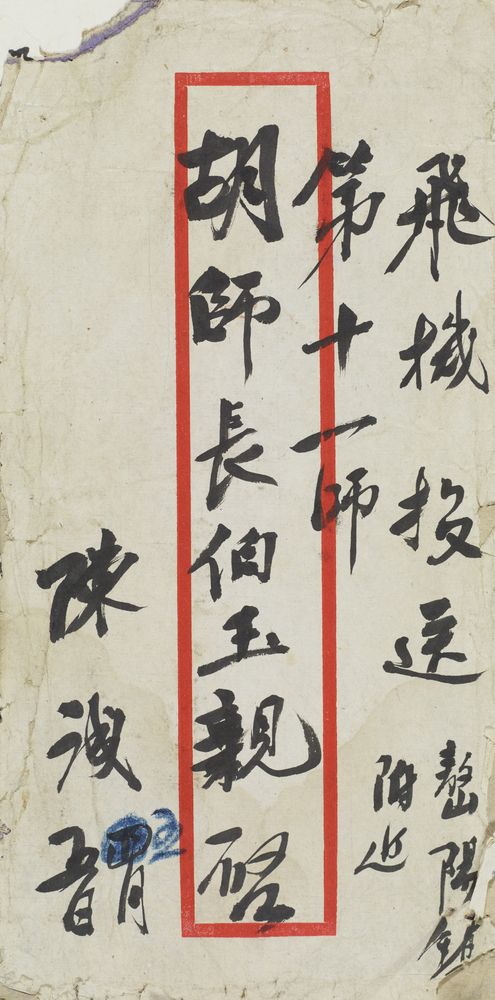 飛機投送
嶅陽鎮
附近
第十一師
胡師長伯玉親啓
陳誠
四月
五日
五